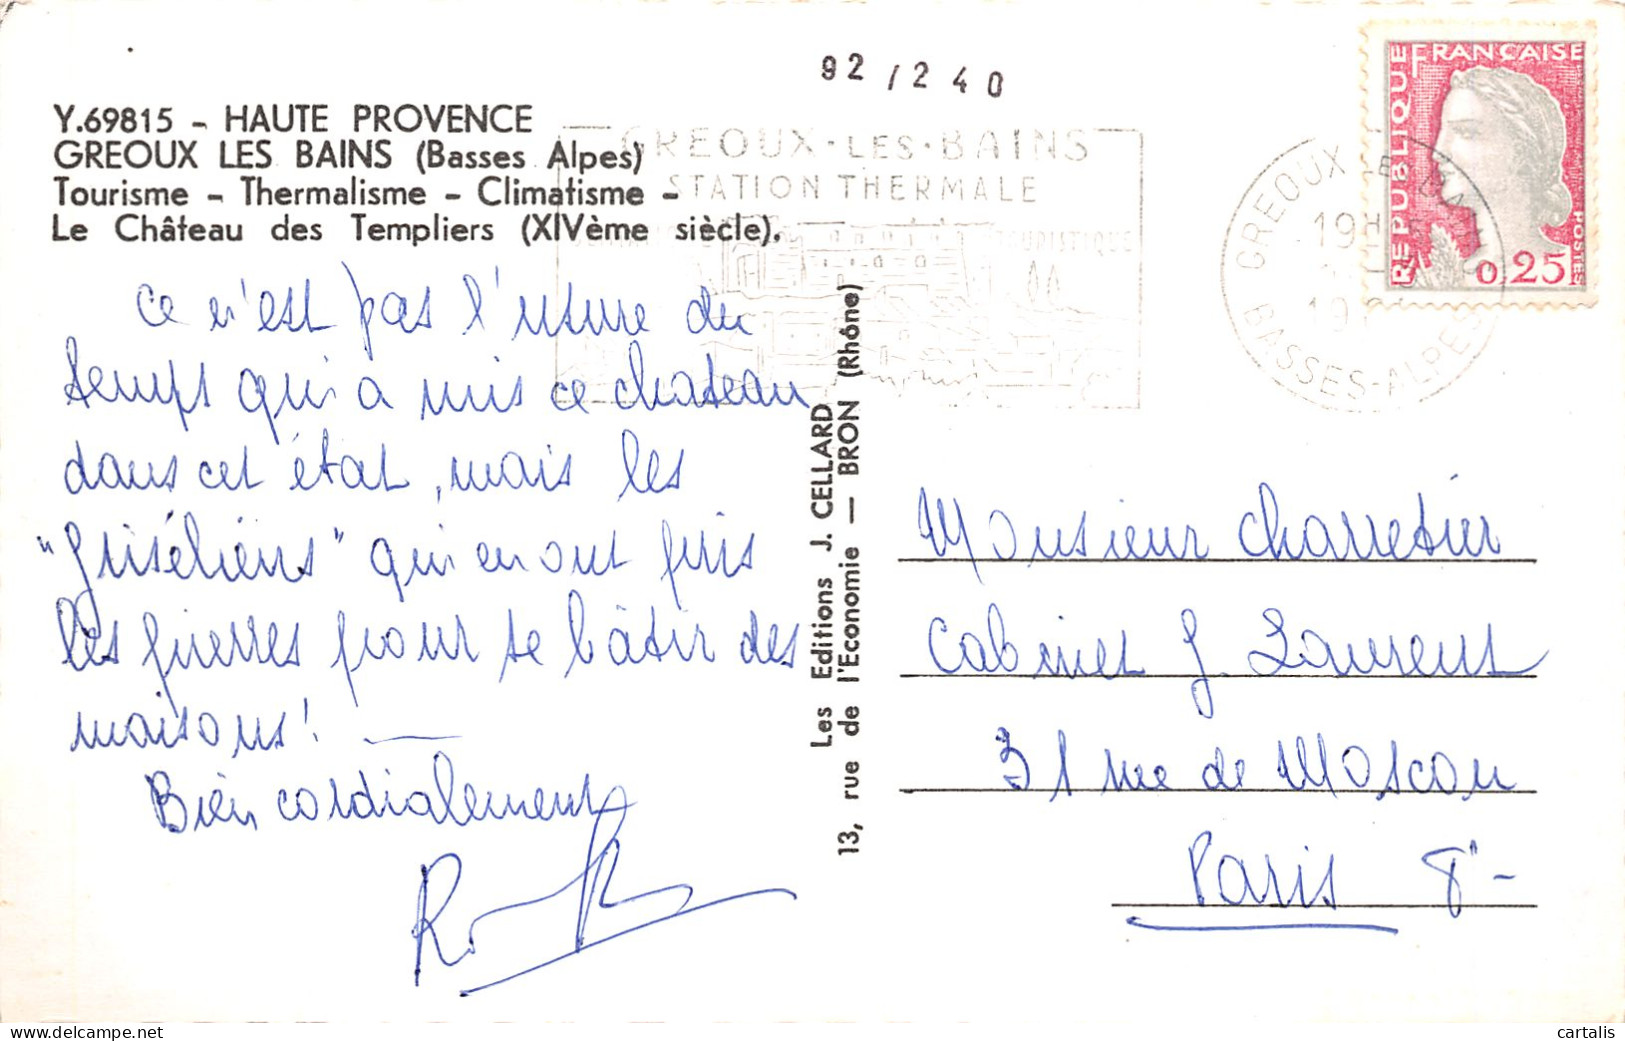 92/240
Y.69815 - HAUTE PROVENCE
GREOUX LES BAINS (Basses Alpes)
Tourisme - Thermalisme - Climatisme -
Le Château des Templiers (XIVème siècle).
GREOUX·LES·BAINS
STATION THERMALE
TOURISTIQUE
GREOUX LES BAINS
19H
BASSES-ALPES
REPUBLIQUE FRANÇAISE
POSTES
0,25F
Ce n'est pas l'usure du
temps qui a mis ce chateau
dans cet état, mais les
"Griséliens" qui en ont pris
les pierres pour se bâtir des
maisons!
Bien cordialement
Les Editions J. CELLARD
13, rue de l'Economie — BRON (Rhône)
Monsieur Charretier
Cabinet J. Laurent
31 rue de Moscou
Paris 8e -
cartalis